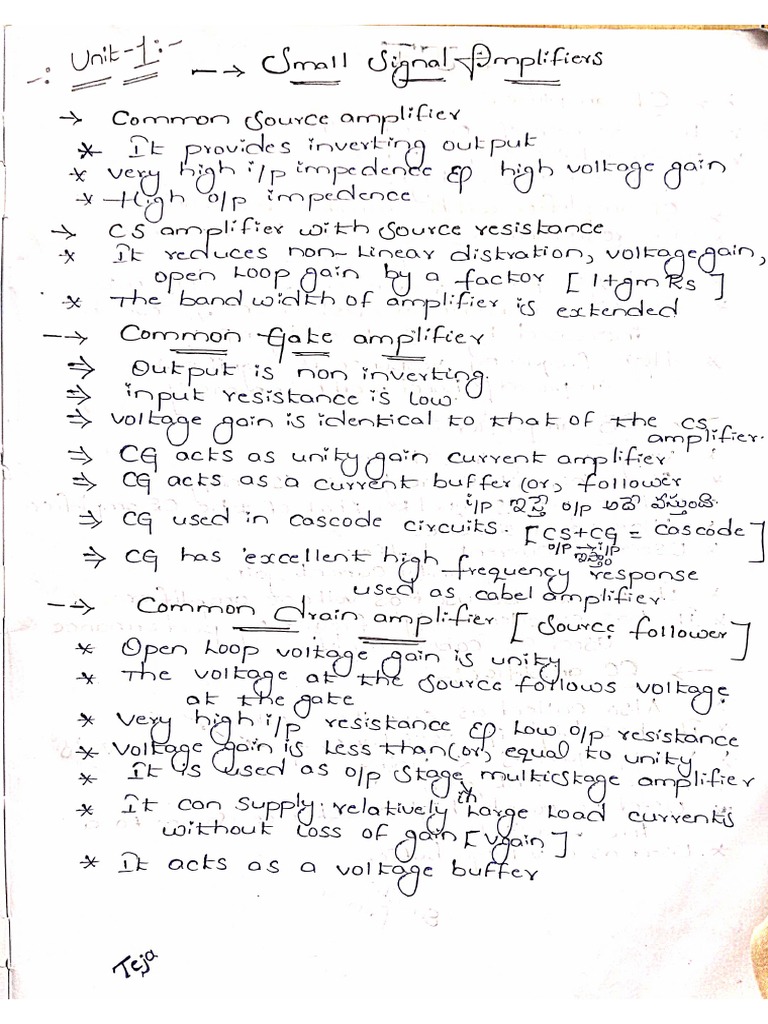 -: Unit-1:- --> Small Signal Amplifiers
-> Common Source amplifier
* It provides inverting output
* very high i/p impedence & high voltage gain
* High o/p impedence
-> CS amplifier with Source resistance
* It reduces non-Linear distration, voltage gain,
open Loop gain by a factor [1+gmRs]
* The band width of amplifier is extended
--> Common Gate amplifier
=> Output is non inverting.
=> input resistance is low.
=> voltage gain is identical to that of the CS
amplifier.
=> CG acts as unity gain current amplifier
=> CG acts as a current buffer (or) follower
i/p ఇస్తే o/p అదే వస్తుంది.
=> CG used in cascode circuits. [CS+CG = cascode]
o/p -> i/p
=> CG has excellent high frequency response
used as cabel amplifier.
--> Common drain amplifier [Source follower]
* Open Loop voltage gain is unity
* The voltage at the Source follows voltage
at the gate
* very high i/p resistance & Low o/p resistance
* voltage gain is Less than (or) equal to unity
* It is used as o/p Stage multicstage amplifier
* It can supply relatively Large Load currents
without Loss of gain [Vgain]
* It acts as a voltage buffer
Teja